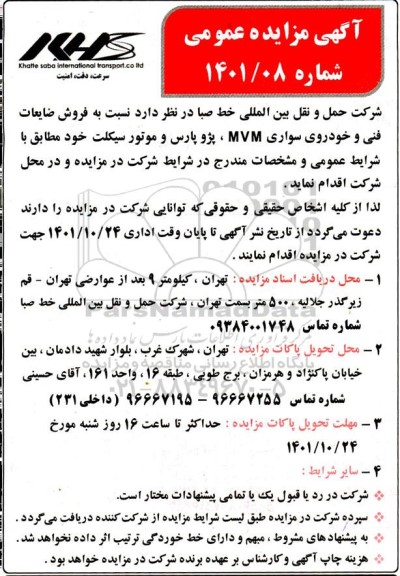 آگهی مزایده عمومی
شماره ۱۴۰۱/۰۸
KHS
Khatte saba international transport.co ltd
سرعت، دقت، امنیت
شرکت حمل و نقل بین المللی خط صبا در نظر دارد نسبت به فروش ضایعات
فنی و خودروی سواری MVM ، پژو پارس و موتور سیکلت خود مطابق با
شرایط عمومی و مشخصات مندرج در شرایط شرکت در مزایده و در محل
شرکت اقدام نماید.
لذا از کلیه اشخاص حقیقی و حقوقی که توانایی شرکت در مزایده را دارند
دعوت می‌گردد از تاریخ نشر آگهی تا پایان وقت اداری ۱۴۰۱/۱۰/۲۴ جهت
شرکت در مزایده اقدام نمایند .
۱ - محل دریافت اسناد مزایده : تهران ، کیلومتر ۹ بعد از عوارضی تهران - قم
زیرگذر جلالیه ، ۵۰۰ متر بسمت تهران ، شرکت حمل و نقل بین‌المللی خط صبا
شماره تماس ۰۹۳۸۴۰۰۱۷۴۸
۲ - محل تحویل پاکات مزایده : تهران ، شهرک غرب ، بلوار شهید دادمان ، بین
خیابان پاکنژاد و هرمزان ، برج طوبی ، طبقه ۱۶ ، واحد ۱۶۱ ، آقای حسینی
شماره تماس ۹۶۶۶۷۲۵۵ - ۹۶۶۶۷۱۹۵ (داخلی ۲۳۱)
۳ - مهلت تحویل پاکات مزایده : حداکثر تا ساعت ۱۶ روز شنبه مورخ
۱۴۰۱/۱۰/۲۴
۴ - سایر شرایط :
شرکت در رد یا قبول یک یا تمامی پیشنهادات مختار است.
سپرده شرکت در مزایده طبق لیست شرایط مزایده از شرکت کننده دریافت می‌گردد .
به پیشنهادهای مشروط ، مبهم و دارای خط خوردگی ترتیب اثر داده نخواهد شد .
هزینه چاپ آگهی و کارشناس بر عهده برنده شرکت در مزایده خواهد بود .